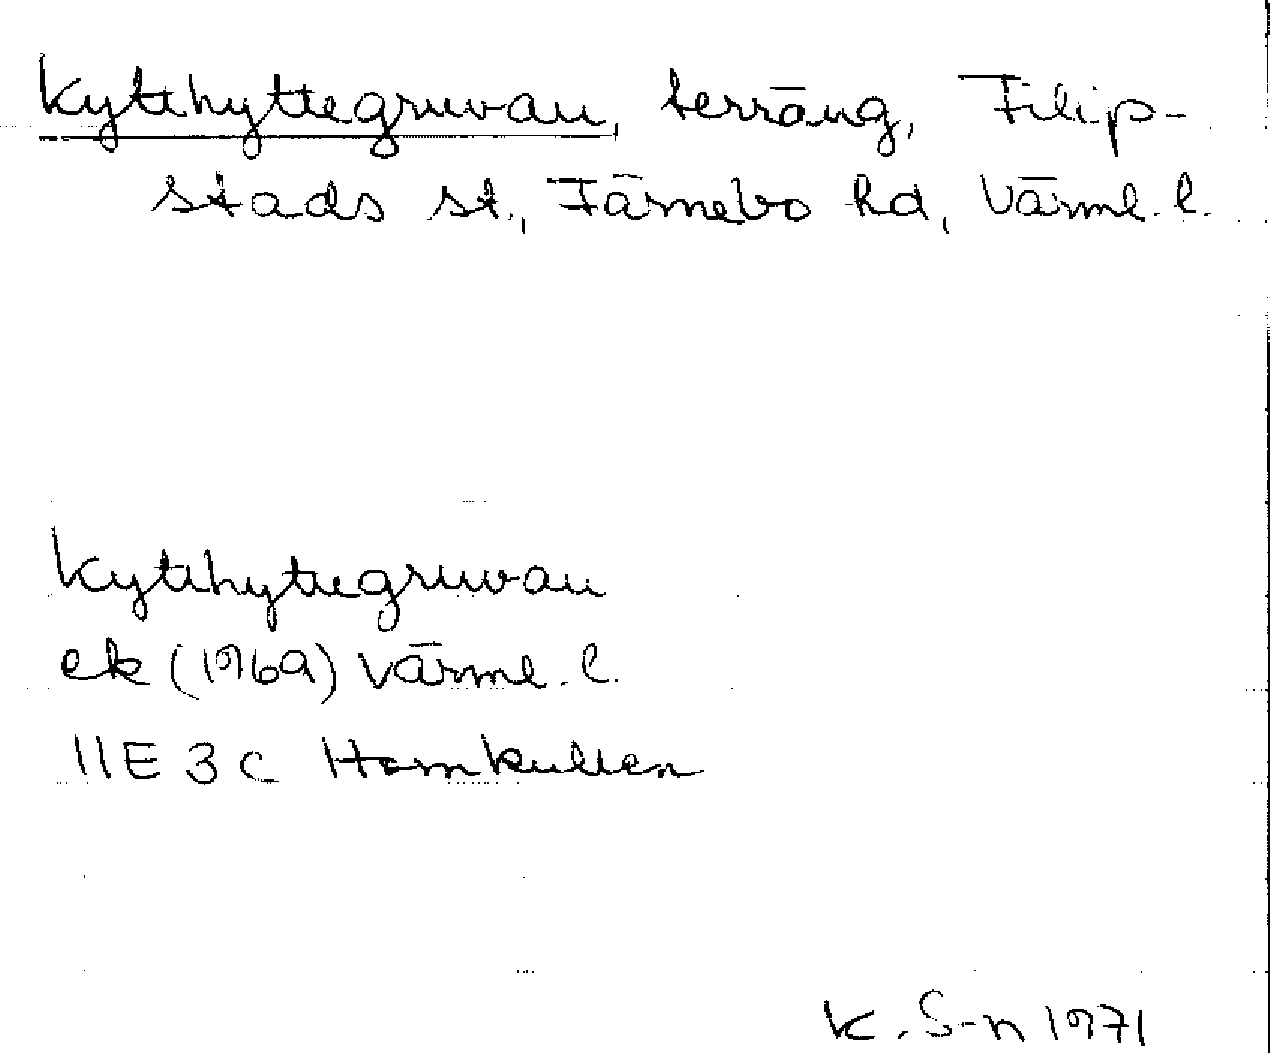 Kytthyttegruvan, terräng, Filip-
stads st., Färnebo hd, Värml. l.
Kytthyttegruvan
ek (1969) Värml. l.
11E 3c Hornkullen
K. S-n 1971